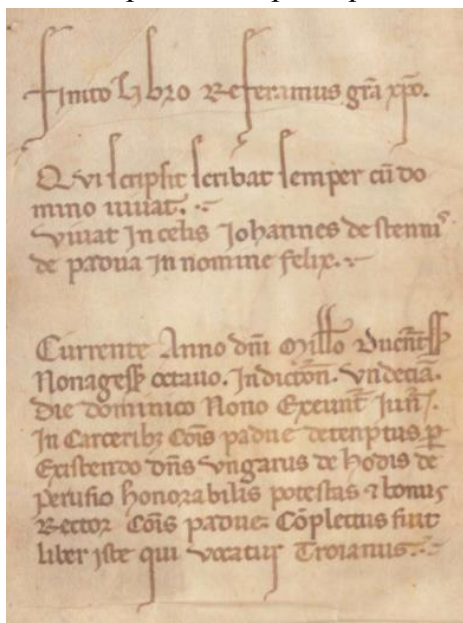 finito libro Referamus grã xpõ.
Qui scripsit scribat semper cũ do
mino uiuat.
viuat In celis Johannes de stennis
de padua In nomine felix.
Currente Anno dnĩ Millo Ducentess
Nonagess octauo. Indictoñ. vndeciã.
Die dominico Nono Exeunt Junij.
In Carceribz Cõis padue detenptus p
Existendo dñs vngarus de hodis de
perusio honorabilis potestas ⁊ bonus
Rector Cõis padue: Cõplectus fuit
liber iste qui vocatur Troianus.